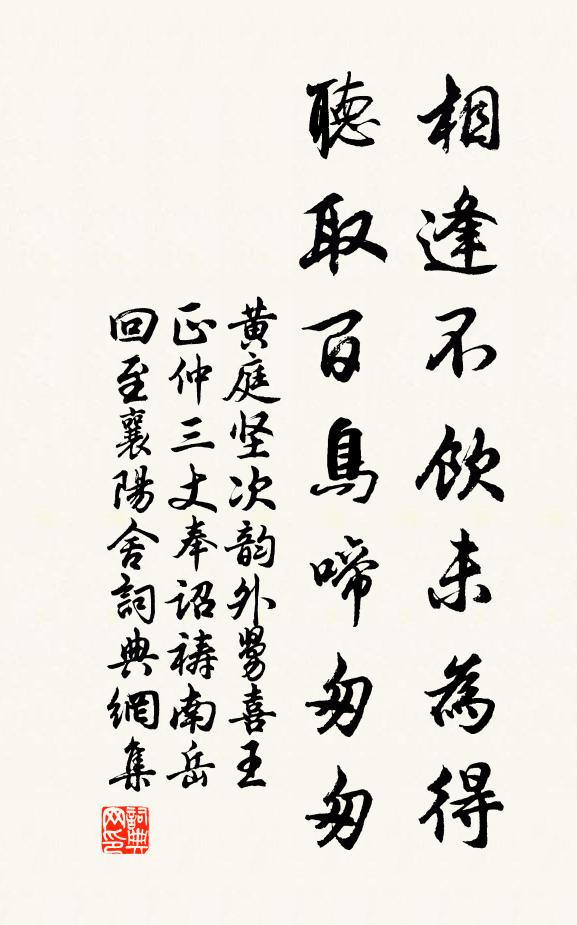 相逢不飲未為得
聽取百鳥啼匆匆
黃庭坚次韵外舅喜王
正仲三丈奉诏祷南岳
回至襄陽舍詞典網集
詞典网印